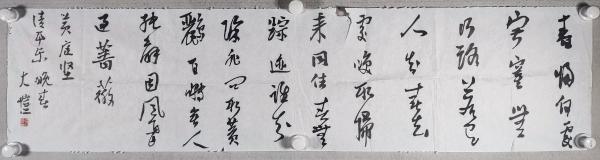 春歸何處
寂寞無
行路若有
人知春去
處喚取歸
来同住春無
踪迹誰知
除非问取黄
鸝百囀無人
能解因風飛
過薔薇
黄庭坚
清平乐晚春